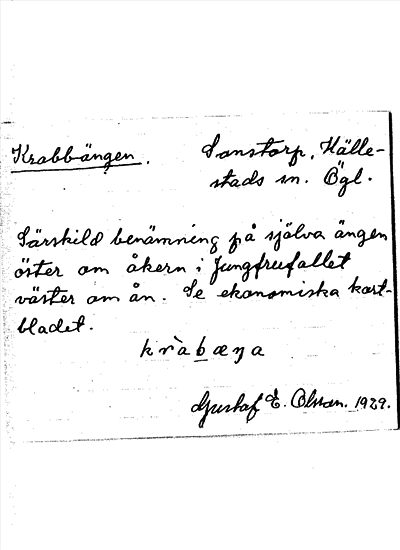 Krabbängen. Sonstorp, Hälle-
stads sn. Ögl.
Särskild benämning på själva ängen
öster om åkern i Jungfrufallet
väster om ån. Se ekonomiska kart-
bladet.
kràbæŋa
Gustaf E. Olsson. 1929.